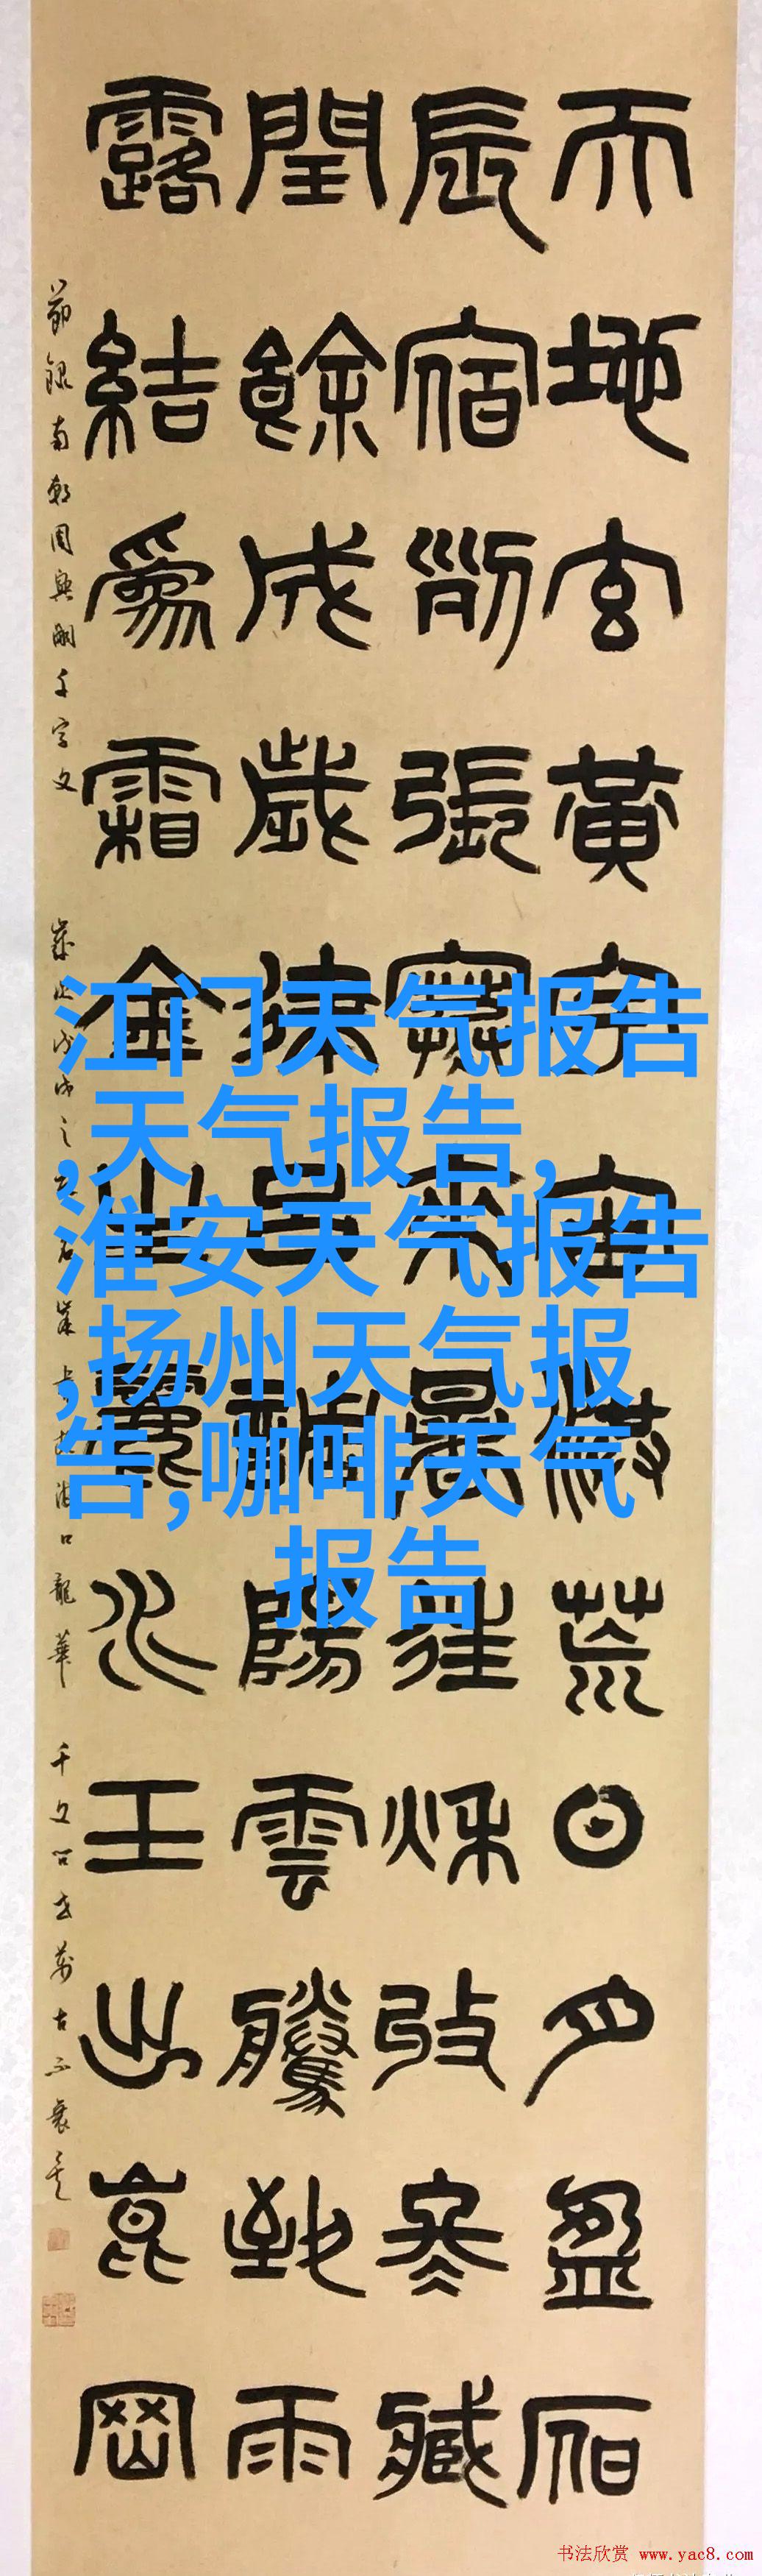 天地玄黃宇宙洪荒日月盈昃
辰宿列張寒來暑往秌收冬藏
閏餘成歲律呂調陽雲騰致雨
露結爲霜金生麗水玉出崑岡
節錄南朝周興嗣千字文
江门天气报告
,天气报告,
淮安天气报告
,扬州天气报
告,咖啡天气
报告
书法欣赏 www.yac8.com